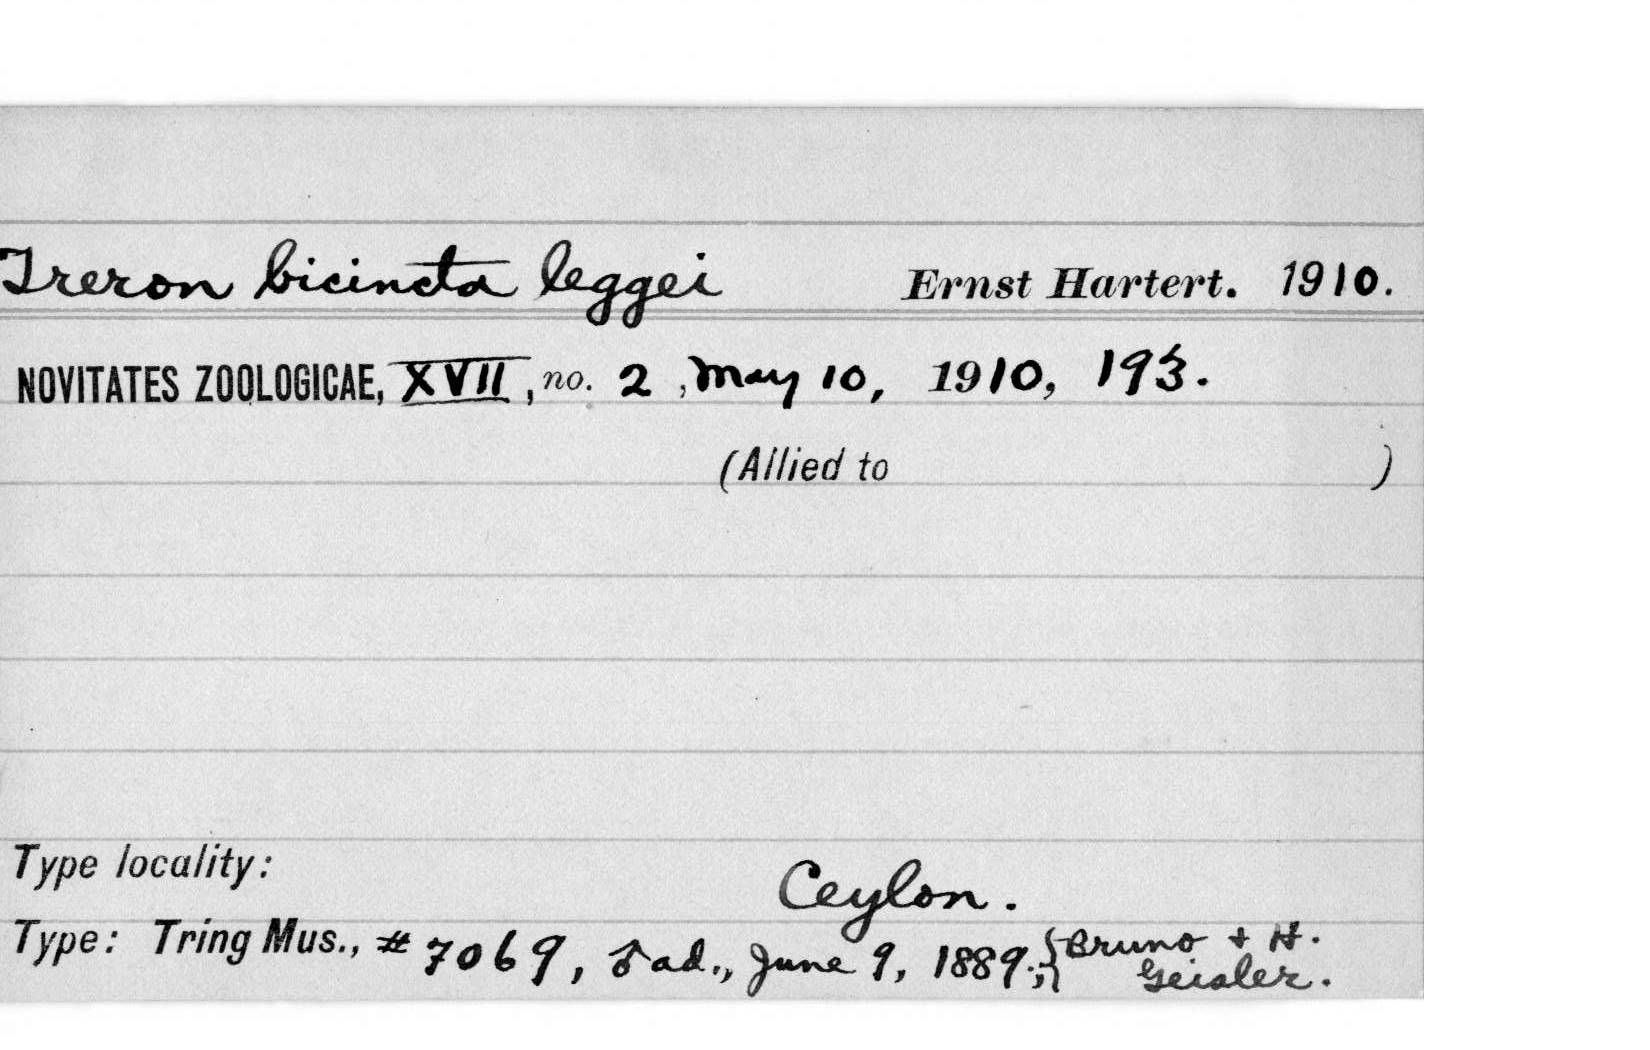 Treron bicincta leggei Ernst Hartert. 1910.
NOVITATES ZOOLOGICAE, XVII, no. 2, May 10, 1910, 193.
(Allied to )
Type locality:
Ceylon.
Type: Tring Mus., # 7069, ♂ ad., June 9, 1889.; { Bruno + H.
Geisler.